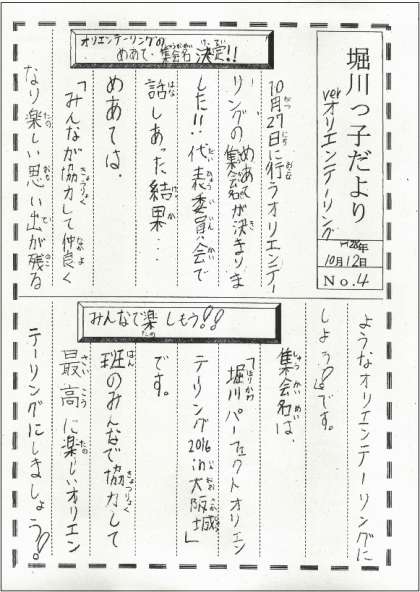 堀川っ子だより
verオリエンテーリング
H28年
10月12日
No.4
オリエンテーリングの
めあて・集会名 決定!!
10月27日に行うオリエンテー
リングのめあて、集会名が決まりま
した!! 代表委員会で
話しあった結果…
めあては、
「みんなが協力して仲良く
なり楽しい思い出が残る
ようなオリエンテーリングに
しよう!」です。
集会名は、
「堀川パーフェクトオリエン
テーリング2016in大阪城」
です。
みんなで楽しもう!!
班のみんなで協力して
最高に楽しいオリエン
テーリングにしましょう!。